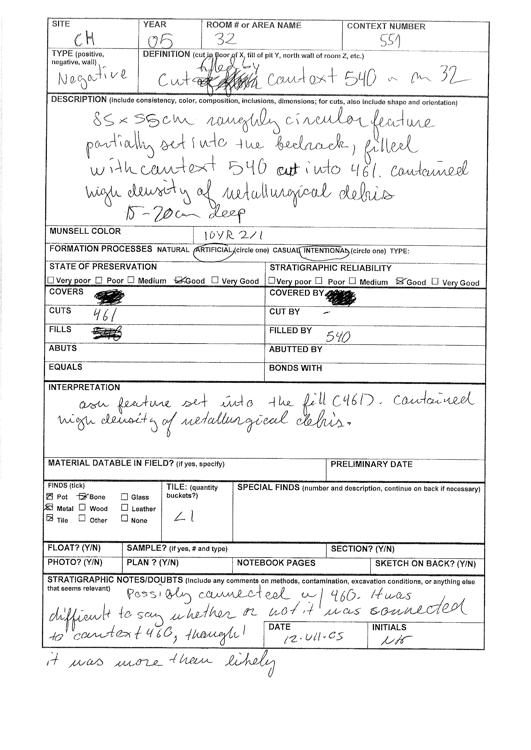 SITE YEAR ROOM # OR AREA NAME CONTEXT NUMBER
CH 05 32 551
TYPE (positive, negative, wall) DEFINITION (cut in floor of X, fill of pit Y, north wall of room Z, etc.)
Negative Cut filled by context 540 in rm 32
DESCRIPTION (include consistency, color, composition, inclusions, dimensions; for cuts, also include shape and orientation)
85 x 55cm roughly circular feature
partially set into the bedrock, filled
with context 540 cut into 461. contained
high density of metallurgical debris
15-20cm deep
MUNSELL COLOR 10YR 2/1
FORMATION PROCESSES NATURAL ARTIFICIAL (circle one) CASUAL INTENTIONAL (circle one) TYPE:
STATE OF PRESERVATION STRATIGRAPHIC RELIABILITY
Very poor Poor Medium Good Very Good Very poor Poor Medium Good Very Good
COVERS COVERED BY
CUTS 461 CUT BY -
FILLS FILLED BY 540
ABUTS ABUTTED BY
EQUALS BONDS WITH
INTERPRETATION
ash feature set into the fill (461). contained
high density of metallurgical debris.
MATERIAL DATABLE IN FIELD? (if yes, specify) PRELIMINARY DATE
FINDS (tick) TILE: (quantity buckets?) SPECIAL FINDS (number and description, continue on back if necessary)
Pot Bone Glass
Metal Wood Leather
Tile Other None
<1
FLOAT? (Y/N) SAMPLE? (if yes, # and type) SECTION? (Y/N)
PHOTO? (Y/N) PLAN ? (Y/N) NOTEBOOK PAGES SKETCH ON BACK? (Y/N)
STRATIGRAPHIC NOTES/DOUBTS (Include any comments on methods, contamination, excavation conditions, or anything else
that seems relevant) Possibly connected w/ 460. It was
difficult to say whether or not it was connected
to context 460, though
DATE INITIALS
12-VII-05
it was more than likely